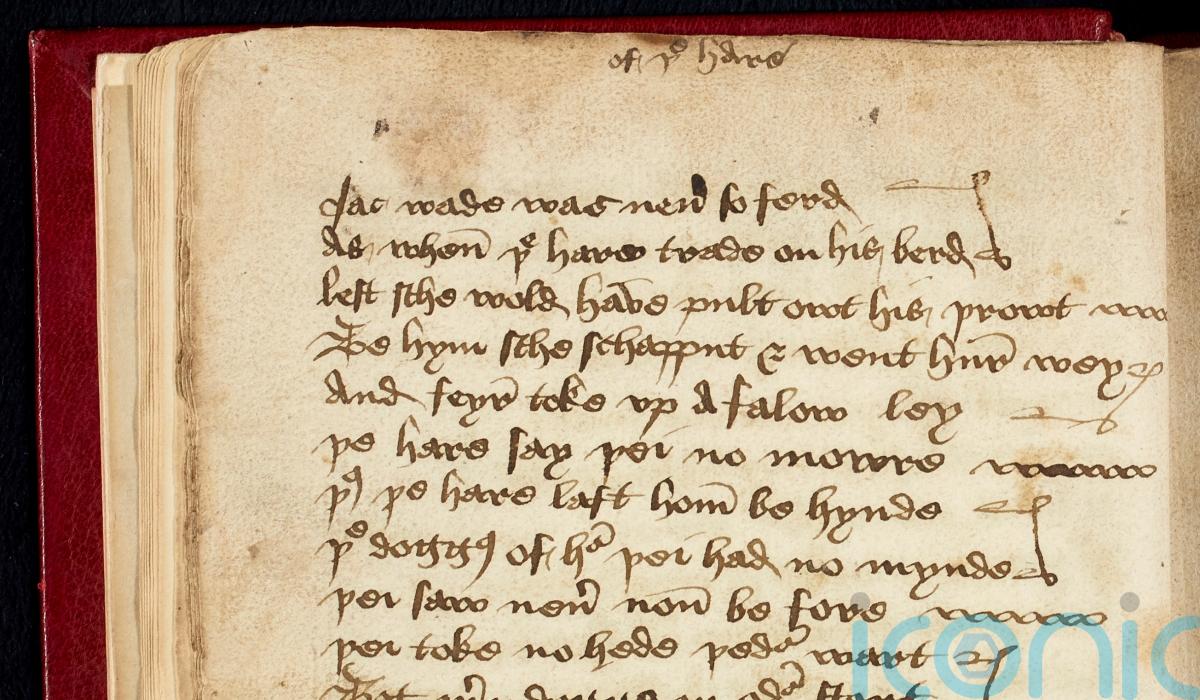 of þe hare
Jac wade was neuer so ferd
As when þe hare trade on his berd
lest sche wold haue pult owt his prowt
Be hym sche schapput & went hur wey
And feyr toke vp A falow ley
þe hare say þei no mowre
þus þe hare laft hom be hynde
þe doggus of hur þei had no mynde
þei saw neuer non be fore
þei toke no hede þedur wart
iconic